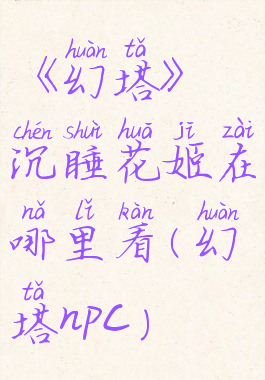 huàn tǎ
《幻塔》
chén shuì huā jī zài
沉睡花姬在
nǎ lǐ kàn huàn
哪里看(幻
tǎ
塔npc)